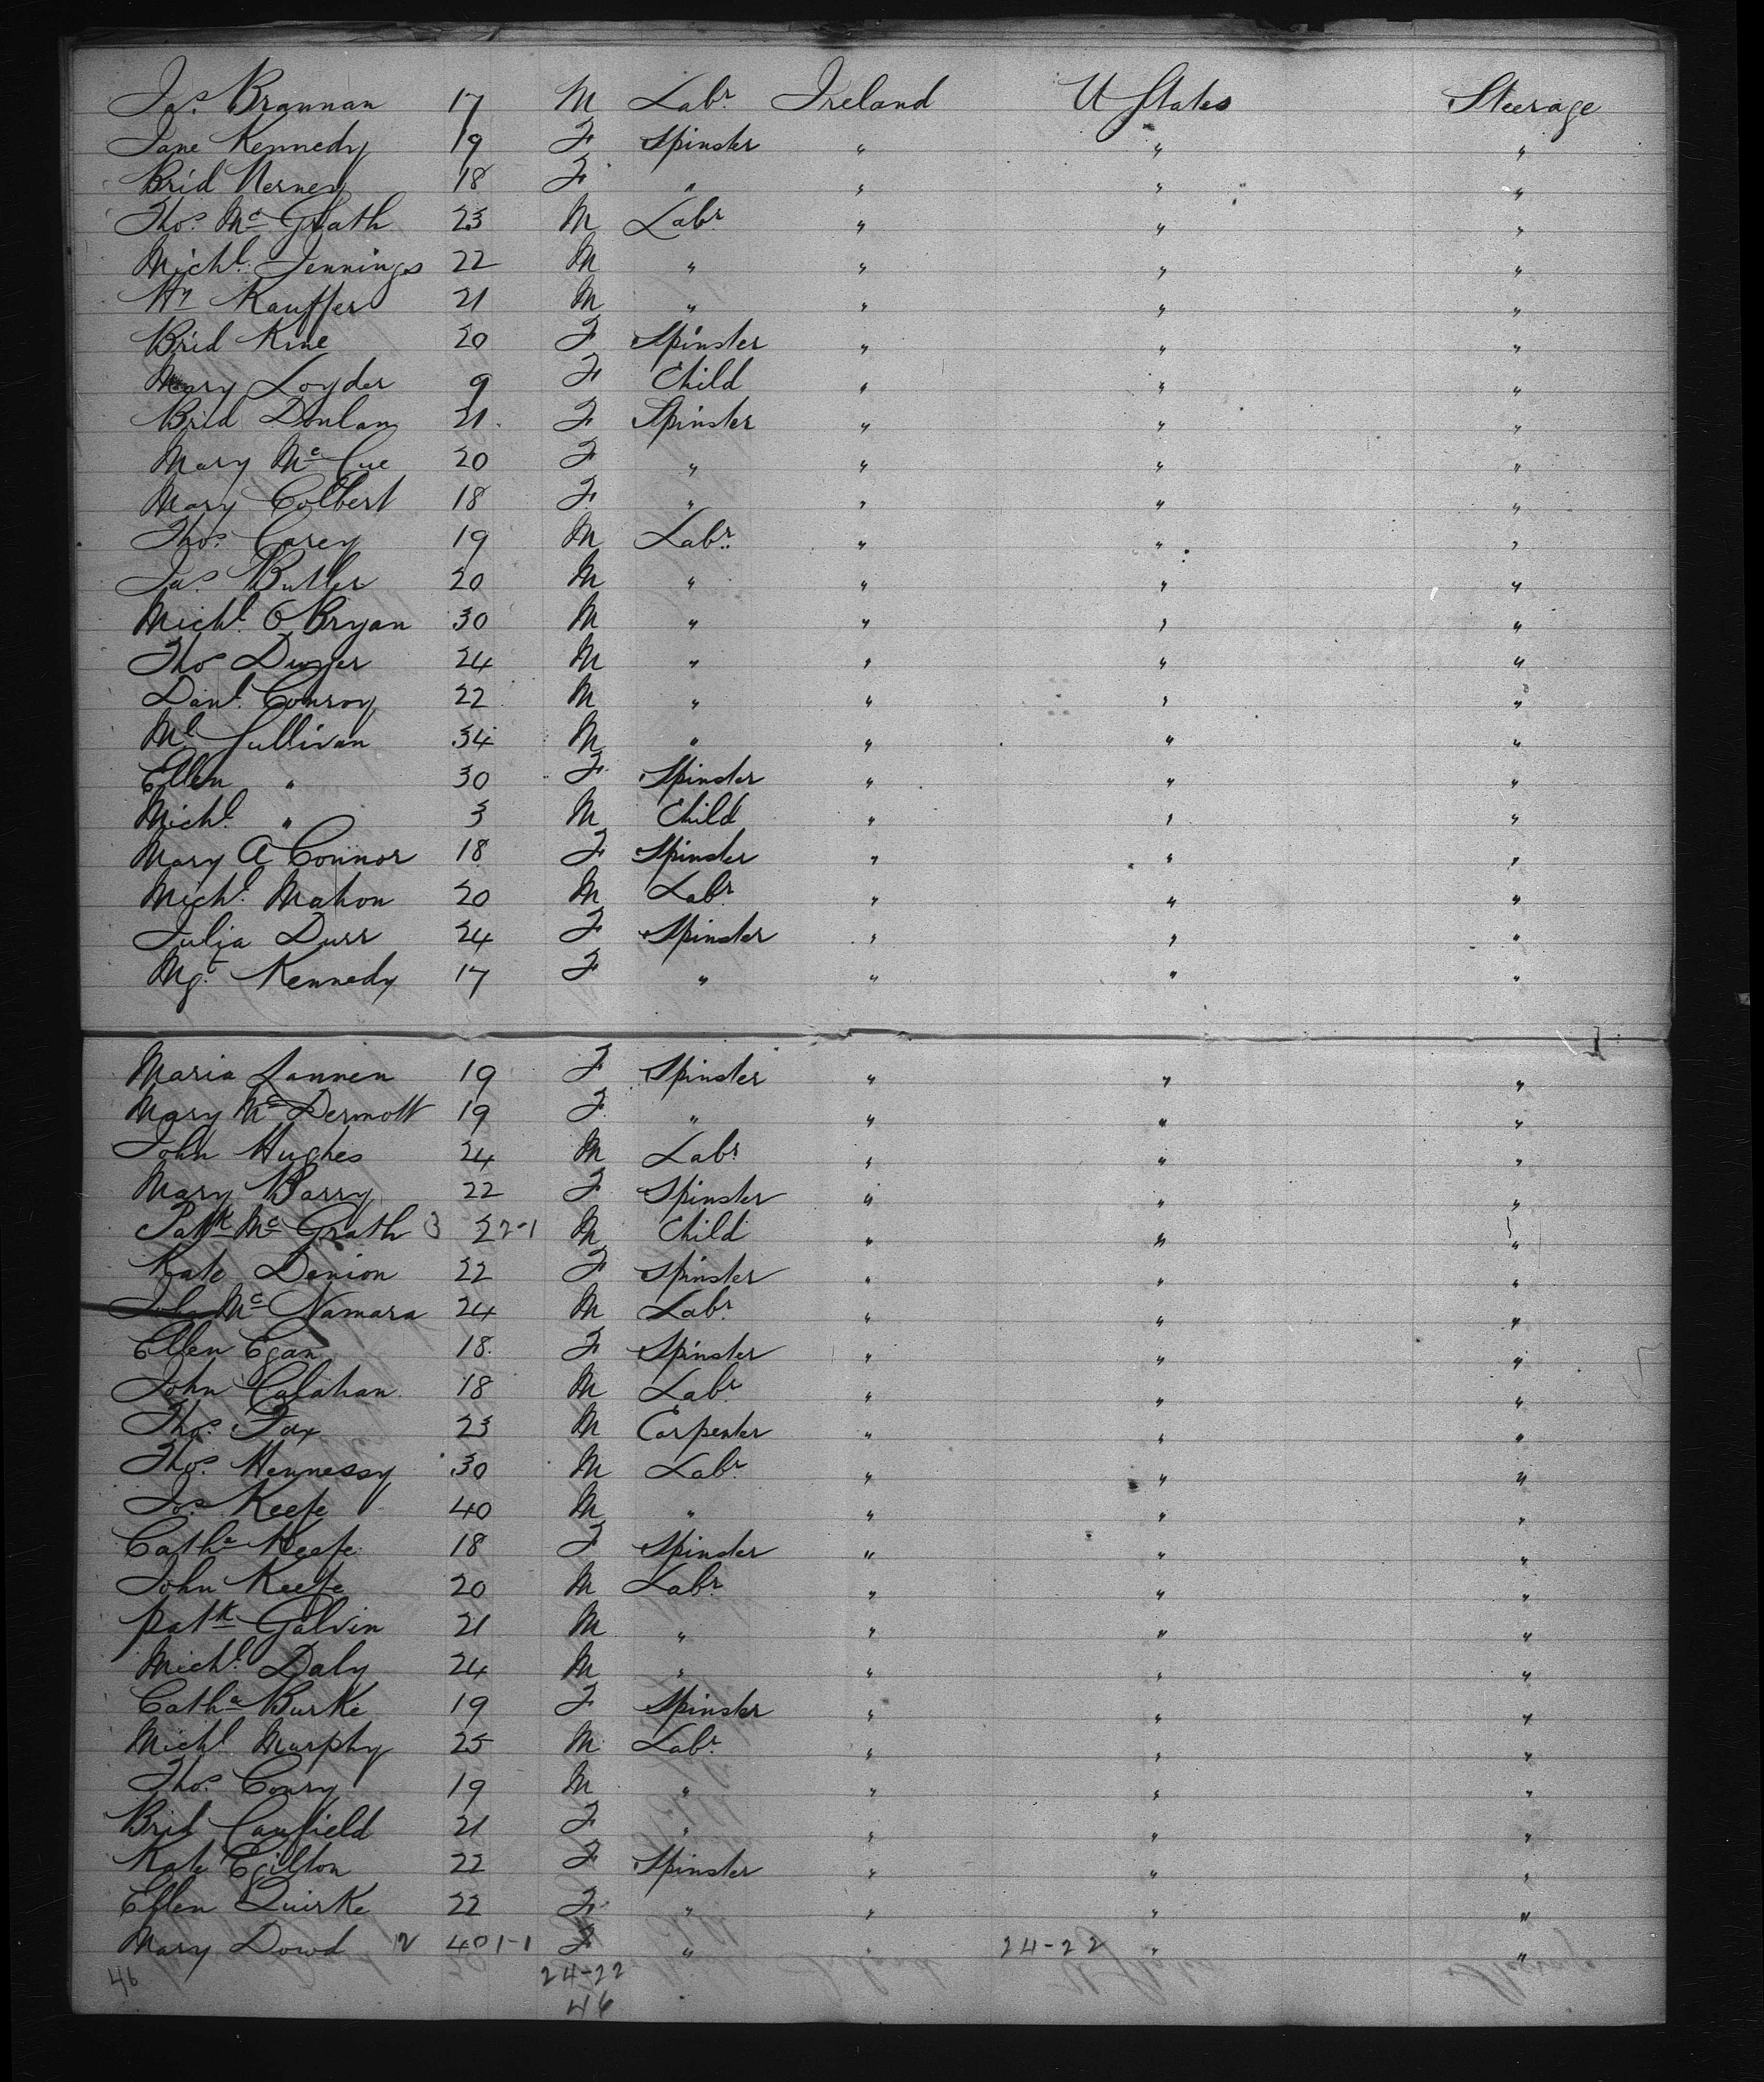 Jas. Brannan 17 M Labr. Ireland U States Steerage
Jane Kennedy 19 F Spinster " " "
Brid Nerney 18 F " " " "
Thos. Mc Grath 23 M Labr. " " "
Michl. Jennings 22 M " " " "
Wm Kauffer 21 M " " " "
Brid Kine 20 F Spinster " " "
Mary Loyder 9 F Child " " "
Brid Donlan 21 F Spinster " " "
Mary Mc Cue 20 F " " " "
Mary Colbert 18 F " " " "
Thos. Carey 19 M Labr. " " "
Jas. Butler 20 M " " " "
Michl. O Bryan 30 M " " " "
Thos Dwyer 24 M " " " "
Danl. Conroy 22 M " " " "
Ml Sullivan 34 M " " " "
Ellen " 30 F Spinster " " "
Michl. " 3 M Child " " "
Mary A Connor 18 F Spinster " " "
Michl. Mahon 20 M Labr. " " "
Julia Durr 24 F Spinster " " "
Mgt. Kennedy 17 F " " " "
Maria Lannen 19 F Spinster " " "
Mary Mc Dermott 19 F " " " "
John Hughes 24 M Labr. " " "
Mary Barry 22 F Spinster " " "
Patk Mc Grath 3 22-1 M Child " " "
Kate Denion 22 F Spinster " " "
John Mc Namara 24 M Labr. " " "
Ellen Egan 18 F Spinster " " "
John Calahan 18 M Labr. " " "
Thos. Fox 23 M Carpenter " " "
Thos. Hennessy 30 M Labr. " " "
Jos. Keefe 40 M " " " "
Catha Keefe 18 F Spinster " " "
John Keefe 20 M Labr. " " "
Patk Galvin 21 M " " " "
Michl. Daly 24 M " " " "
Catha Burke 19 F Spinster " " "
Michl Murphy 25 M Labr. " " "
Thos. Conry 19 M " " " "
Brid Caufield 21 F " " " "
Kate Egilton 22 F Spinster " " "
Ellen Quirke 22 F " " " "
Mary Dowd 2 40 1-1 F " " 24-22 " "
46 24-22
46